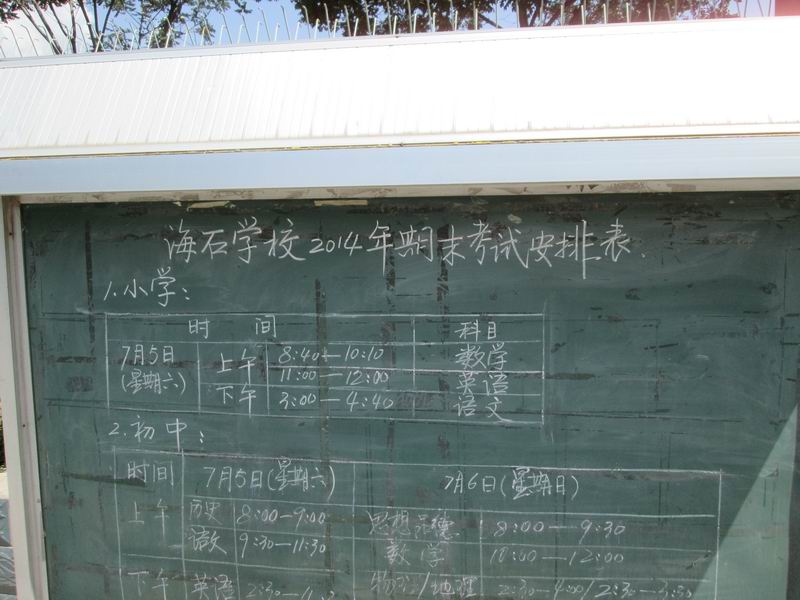 海石学校2014年期末考试安排表.
1.小学:
时 间 科目
7月5日 (星期六) 上午 8:40—10:10 数学
11:00—12:00 英语
下午 3:00—4:40 语文
2.初中:
时间 7月5日(星期六) 7月6日(星期日)
上午 历史 8:00—9:00 思想品德 8:00—9:30
语文 9:30—11:30 数学 10:00—12:00
下午 英语 2:30— 物理/地理 2:30—4:00/2:30—3:30